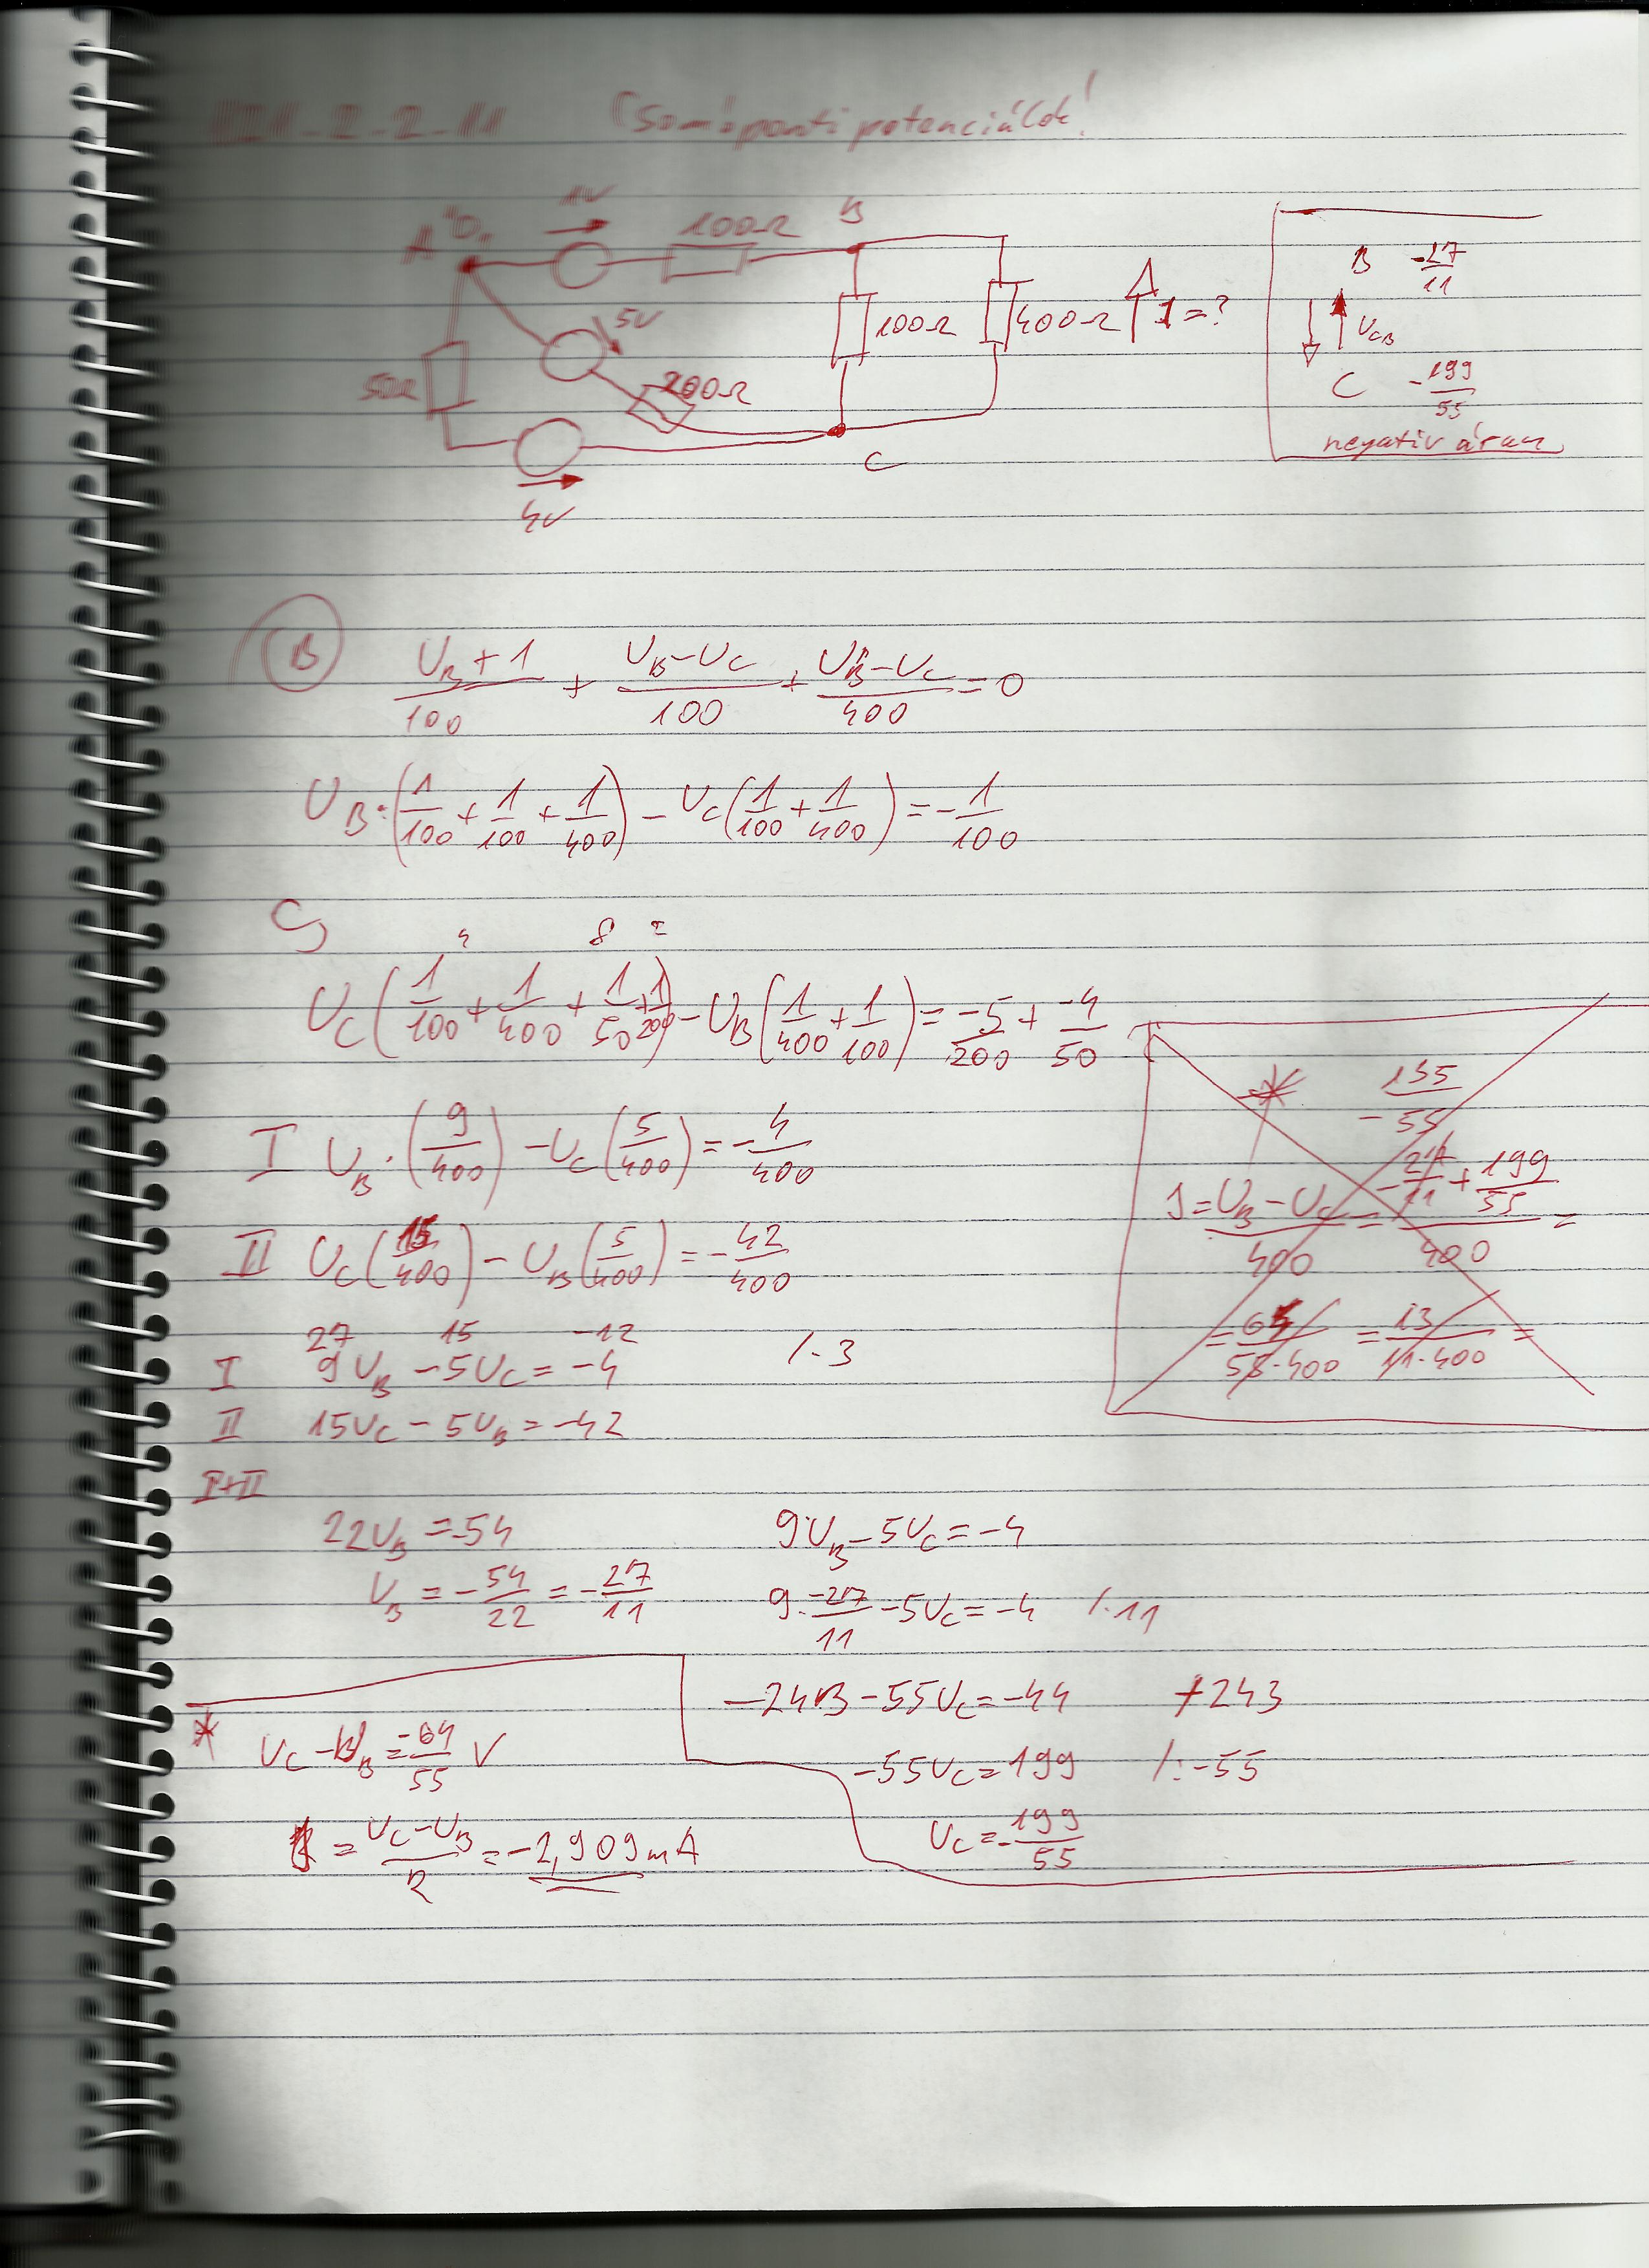 Csomóponti potenciálok!
A "0"
1V
100Ω
B
5V
100Ω
400Ω
I=?
50Ω
200Ω
C
4V
B -27/11
U_CB
C -199/55
negatív áram
B
(U_B+1)/100 + (U_B-U_C)/100 + (U_B-U_C)/400 = 0
U_B·(1/100 + 1/100 + 1/400) - U_C(1/100 + 1/400) = -1/100
C
4 8 2
U_C(1/100 + 1/400 + 1/50 + 1/200) - U_B(1/400 + 1/100) = -5/200 + -4/50
I U_B·(9/400) - U_C(5/400) = -4/400
II U_C(15/400) - U_B(5/400) = -42/400
27 15 -12
I 9U_B - 5U_C = -4 /·3
II 15U_C - 5U_B = -42
I+II
22U_B = -54
U_B = -54/22 = -27/11
9·U_B - 5U_C = -4
9·-27/11 - 5U_C = -4 /·11
-243 - 55U_C = -44 +243
-55U_C = 199 /:-55
U_C = -199/55
* 135/-55
I = (U_B-U_C)/400 = (-27/11 + 199/55)/400 =
= 64/(55·400) = 13/(11·400) =
* U_C - U_B = -64/55 V
I = (U_C-U_B)/R = -2,909mA